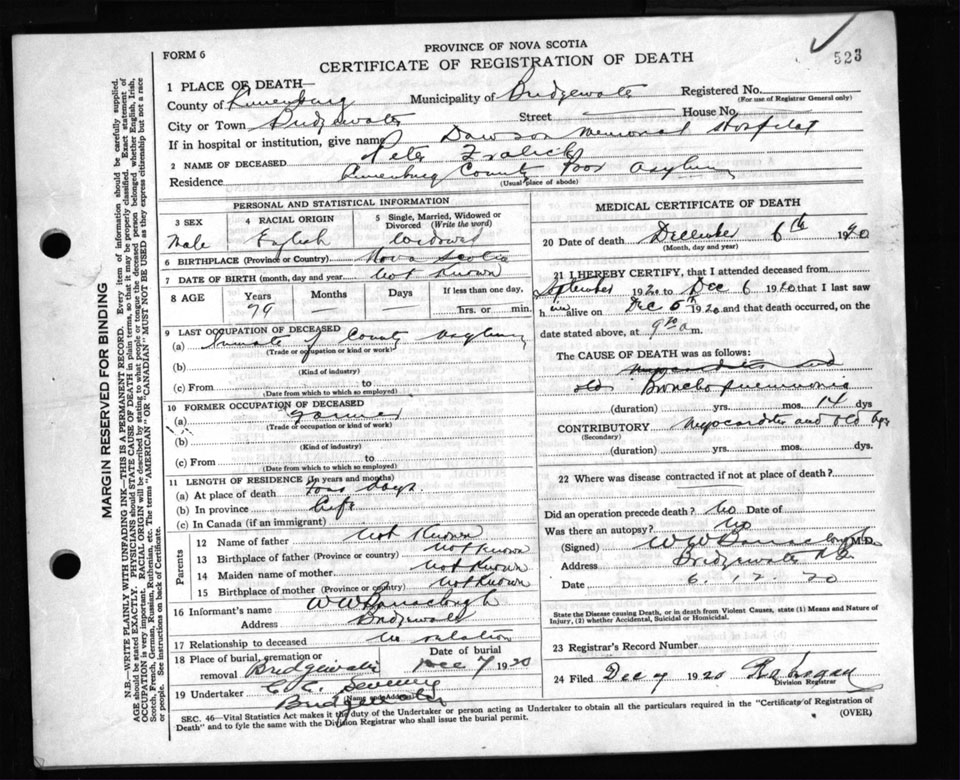 PROVINCE OF NOVA SCOTIA
FORM 6
CERTIFICATE OF REGISTRATION OF DEATH
523
1 PLACE OF DEATH—
County of Lunenburg Municipality of Bridgewater Registered No.
(For use of Registrar General only)
City or Town Bridgewater Street House No.
If in hospital or institution, give name Dawson Memorial Hospital
2 NAME OF DECEASED Peter Fralick
Residence Lunenburg County Poor Asylum
(Usual place of abode)
PERSONAL AND STATISTICAL INFORMATION
3 SEX 4 RACIAL ORIGIN 5 Single, Married, Widowed or
Divorced (Write the word)
Male English Widowed
6 BIRTHPLACE (Province or Country) Nova Scotia
7 DATE OF BIRTH (month, day and year) Not Known
8 AGE Years Months Days If less than one day,
79 — — hrs. or min.
9 LAST OCCUPATION OF DECEASED
(a) Inmate of County Asylum
(Trade or occupation or kind of work)
(b)
(Kind of industry)
(c) From to
(Date from which to which so employed)
10 FORMER OCCUPATION OF DECEASED
(a) Farmer
(Trade or occupation or kind of work)
(b)
(Kind of industry)
(c) From to
(Date from which to which so employed)
11 LENGTH OF RESIDENCE (In years and months)
(a) At place of death four days
(b) In province Life
(c) In Canada (if an immigrant)
Parents
12 Name of father Not Known
13 Birthplace of father (Province or country) Not Known
14 Maiden name of mother Not Known
15 Birthplace of mother (Province or country) Not Known
16 Informant's name W W
Address Bridgewater
17 Relationship to deceased No relation
18 Place of burial, cremation or Date of burial
removal Bridgewater Dec 7 1920
19 Undertaker C. C.
Name and Address
Bridgewater
MEDICAL CERTIFICATE OF DEATH
20 Date of death December 6th 1920
(Month, day and year)
21 I HEREBY CERTIFY, that I attended deceased from
September 1920 to Dec 6 1920 that I last saw
him alive on Dec 5th 1920 and that death occurred, on the
date stated above, at 9 30 a m.
The CAUSE OF DEATH was as follows:
Myocarditis and
old Broncho pneumonia
(duration) yrs. mos. 14 dys
CONTRIBUTORY Myocarditis and old age
(Secondary)
(duration) yrs. mos. dys.
22 Where was disease contracted if not at place of death?
Did an operation precede death? No Date of
Was there an autopsy? No
(Signed) W W M.D.
Address Bridgewater N.S.
Date 6. 12. 20
State the Disease causing Death, or in death from Violent Causes, state (1) Means and Nature of
Injury, (2) whether Accidental, Suicidal or Homicidal.
23 Registrar's Record Number
24 Filed Dec 7 1920
Division Registrar
SEC. 46—Vital Statistics Act makes it the duty of the Undertaker or person acting as Undertaker to obtain all the particulars required in the "Certificate of Registration of
Death" and to fyle the same with the Division Registrar who shall issue the burial permit. (OVER)
MARGIN RESERVED FOR BINDING
N.B.—WRITE PLAINLY WITH UNFADING INK—THIS IS A PERMANENT RECORD. Every item of information should be carefully supplied.
AGE should be stated EXACTLY. PHYSICIANS should STATE CAUSE OF DEATH in plain terms, so that it may be properly classified. Exact statement of
OCCUPATION is very important. RACIAL ORIGIN will be described by stating to what people or tongue the deceased person belonged whether English, Irish,
Scotch, French, German, Russian, Ruthenian, etc. The terms "AMERICAN" OR "CANADIAN" MUST NOT BE USED as they express citizenship but not a race
or people. See instructions on back of Certificate.